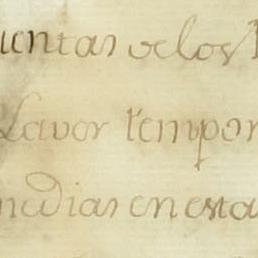 uentas de los
Lavor tempor
medias en esta